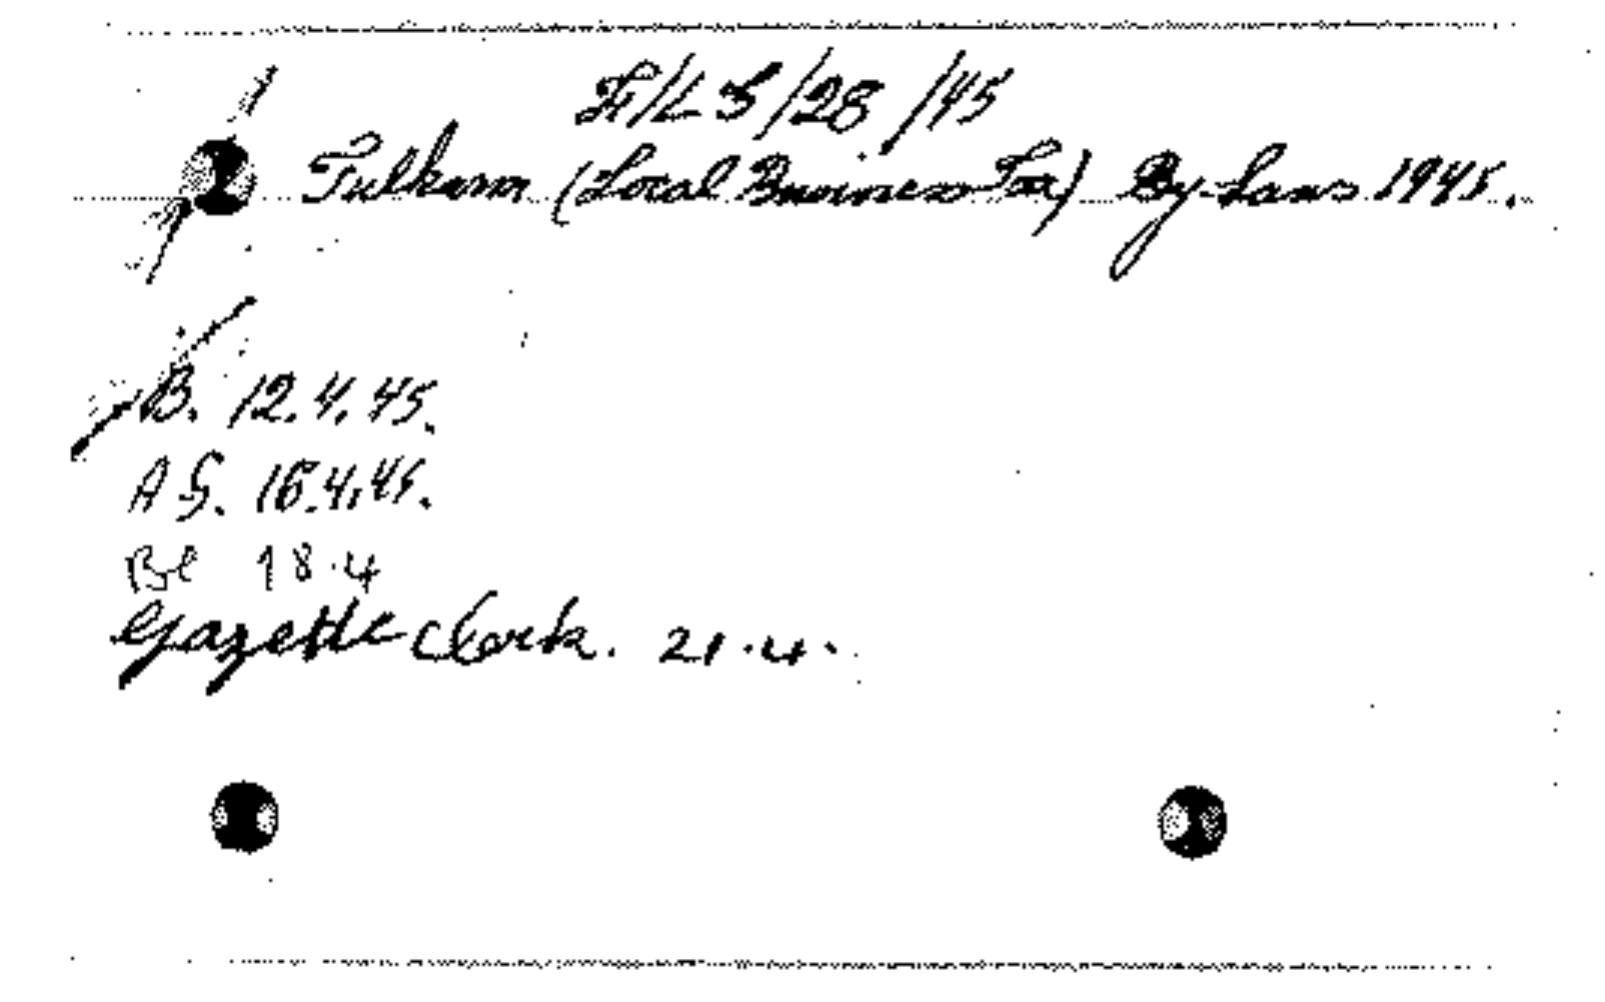 Fi/LS/28/45
Tulkarm (Local Business Tax) By-Laws 1945.
B. 12.4.45.
AG. 16.4.45.
Be 18.4
Gazette Clerk. 21.4.